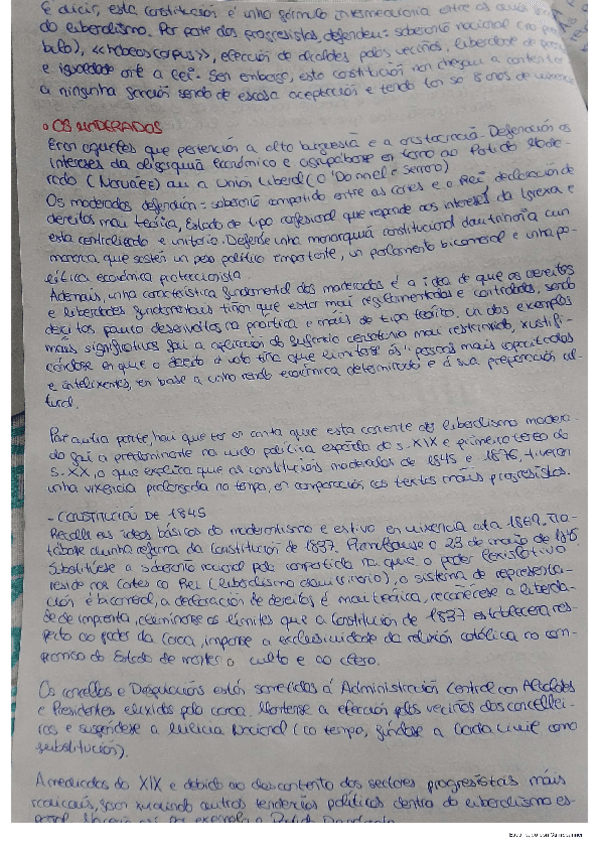 É dicir, esta constitución é unha fórmula intermediaria entre as dúas
do liberalismo. Por parte dos progresistas, defenden: soberanía nacional (no preám
bulo), «habeas corpus», elección de alcaldes polos veciños, liberdade de
e igualdade ante a lei. Sen embargo, esta constitución non chegou a contentar
a ningunha sendo de escasa aceptación e tendo tan so 8 anos de vixencia
• OS MODERADOS
Eran aqueles que pertencían a alta burguesía e a aristocracia. Defendían os
intereses da oligarquía económica e agrupábase en torno ao Partido Mode-
rado (Narváez) ou a Unión Liberal (O'Donnel e Serrano)
Os moderados defendían: soberanía compartida entre as cortes e o Rei, declaración de
dereitos moi teórica, Estado de tipo confesional que responde aos intereses da Igrexa e
esta centralizado e unitario. Defende unha monarquía constitucional doutrinaria cun
monarca que sostén un peso político importante, un parlamento bicameral e unha po-
lítica económica proteccionista.
Ademais, unha característica fundamental dos moderados é a idea de que os dereitos
e liberdades fundamentais tiñan que estar moi regulamentadas e controladas, sendo
dereitos pouco desenvoltos na práctica e máis de tipo teórico. Un dos exemplos
máis significativos foi a aplicación do sufraxio censitario moi restrinxido, xustifi-
cándose en que o dereito a voto tiña que limitarse ás "persoas mais capacitadas
e intelixentes, en base a unha renda económica determinada e á sua preparación cul-
tural.
Por outra parte, hai que ter en conta que esta corrente do liberalismo modera-
do foi a predominante na vida política española do s. XIX e primeiro terzo do
s. XX, o que explica que as constitucións moderadas de 1845 e 1876, tiveran
unha vixencia prolongada no tempo, en comparación cos textos máis progresistas.
- CONSTITUCIÓN DE 1845
Recolle as ideas básicas do moderantismo e estivo en vixencia ata 1869. Tra-
tábase dunha reforma da Constitución de 1837. Promulgouse o 23 de maio de 1845
Substitúese a soberanía nacional pola compartida na que o poder lexislativo
reside nas Cortes co Rei (liberalismo doutrinario), o sistema de representa-
ción é bicameral, a declaración de dereitos é moi teórica, recoñécese a liberda-
de de imprenta, elimínanse os límites que a Constitución de 1837 establecera res-
pecto ao poder da Coroa, imponse a exclusividade da relixión católica no com-
promiso do Estado de manter o culto e ao clero.
Os concellos e Deputacións están sometidos á Administración Central con Alcaldes
e Presidentes elixidos pola coroa. Mantense a elección polos veciños dos concellei-
ros e suspéndese a Milicia Nacional (co tempo, fúndase a Garda Civil como
substitución).
A mediados do XIX e debido ao descontento dos sectores progresistas máis
radicais, foron xurdindo outras tendencias políticas dentro do liberalismo es-
pañol. por exemplo o Partido Demócrata